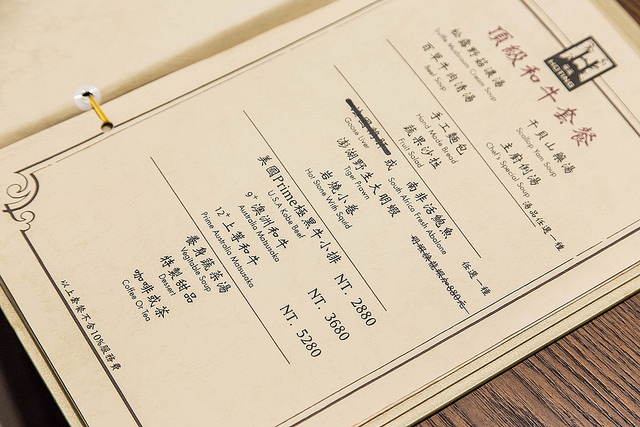 HOTING
頂級和牛套餐
松露野菇濃湯 干貝山藥湯
Truffle Mushroom Cream Soup Scallop Yam Soup
百里牛肉清湯 主廚例湯 湯品任選一種
Beef Soup Chef's Special Soup
手工麵包
Hand Made Bread
蔬果沙拉
Fruit Salad
或 南非活鮑魚 任選一種
Goose Liver South Africa Fresh Abalone
澎湖野生大明蝦
Tiger Prawn
岩燒小卷
Hot Stone With Squid
美國Prime極黑牛小排 NT. 2880
U.S.A Kobe Beef
9+澳洲和牛 NT. 3680
Australia Matsusaka
12+上等和牛 NT. 5280
Prime Australia Matsusaka
養身蔬菜湯
Vegitable Soup
特製甜品
Dessert
咖啡或茶
Coffee Or Tea
以上套餐不含10%服務費